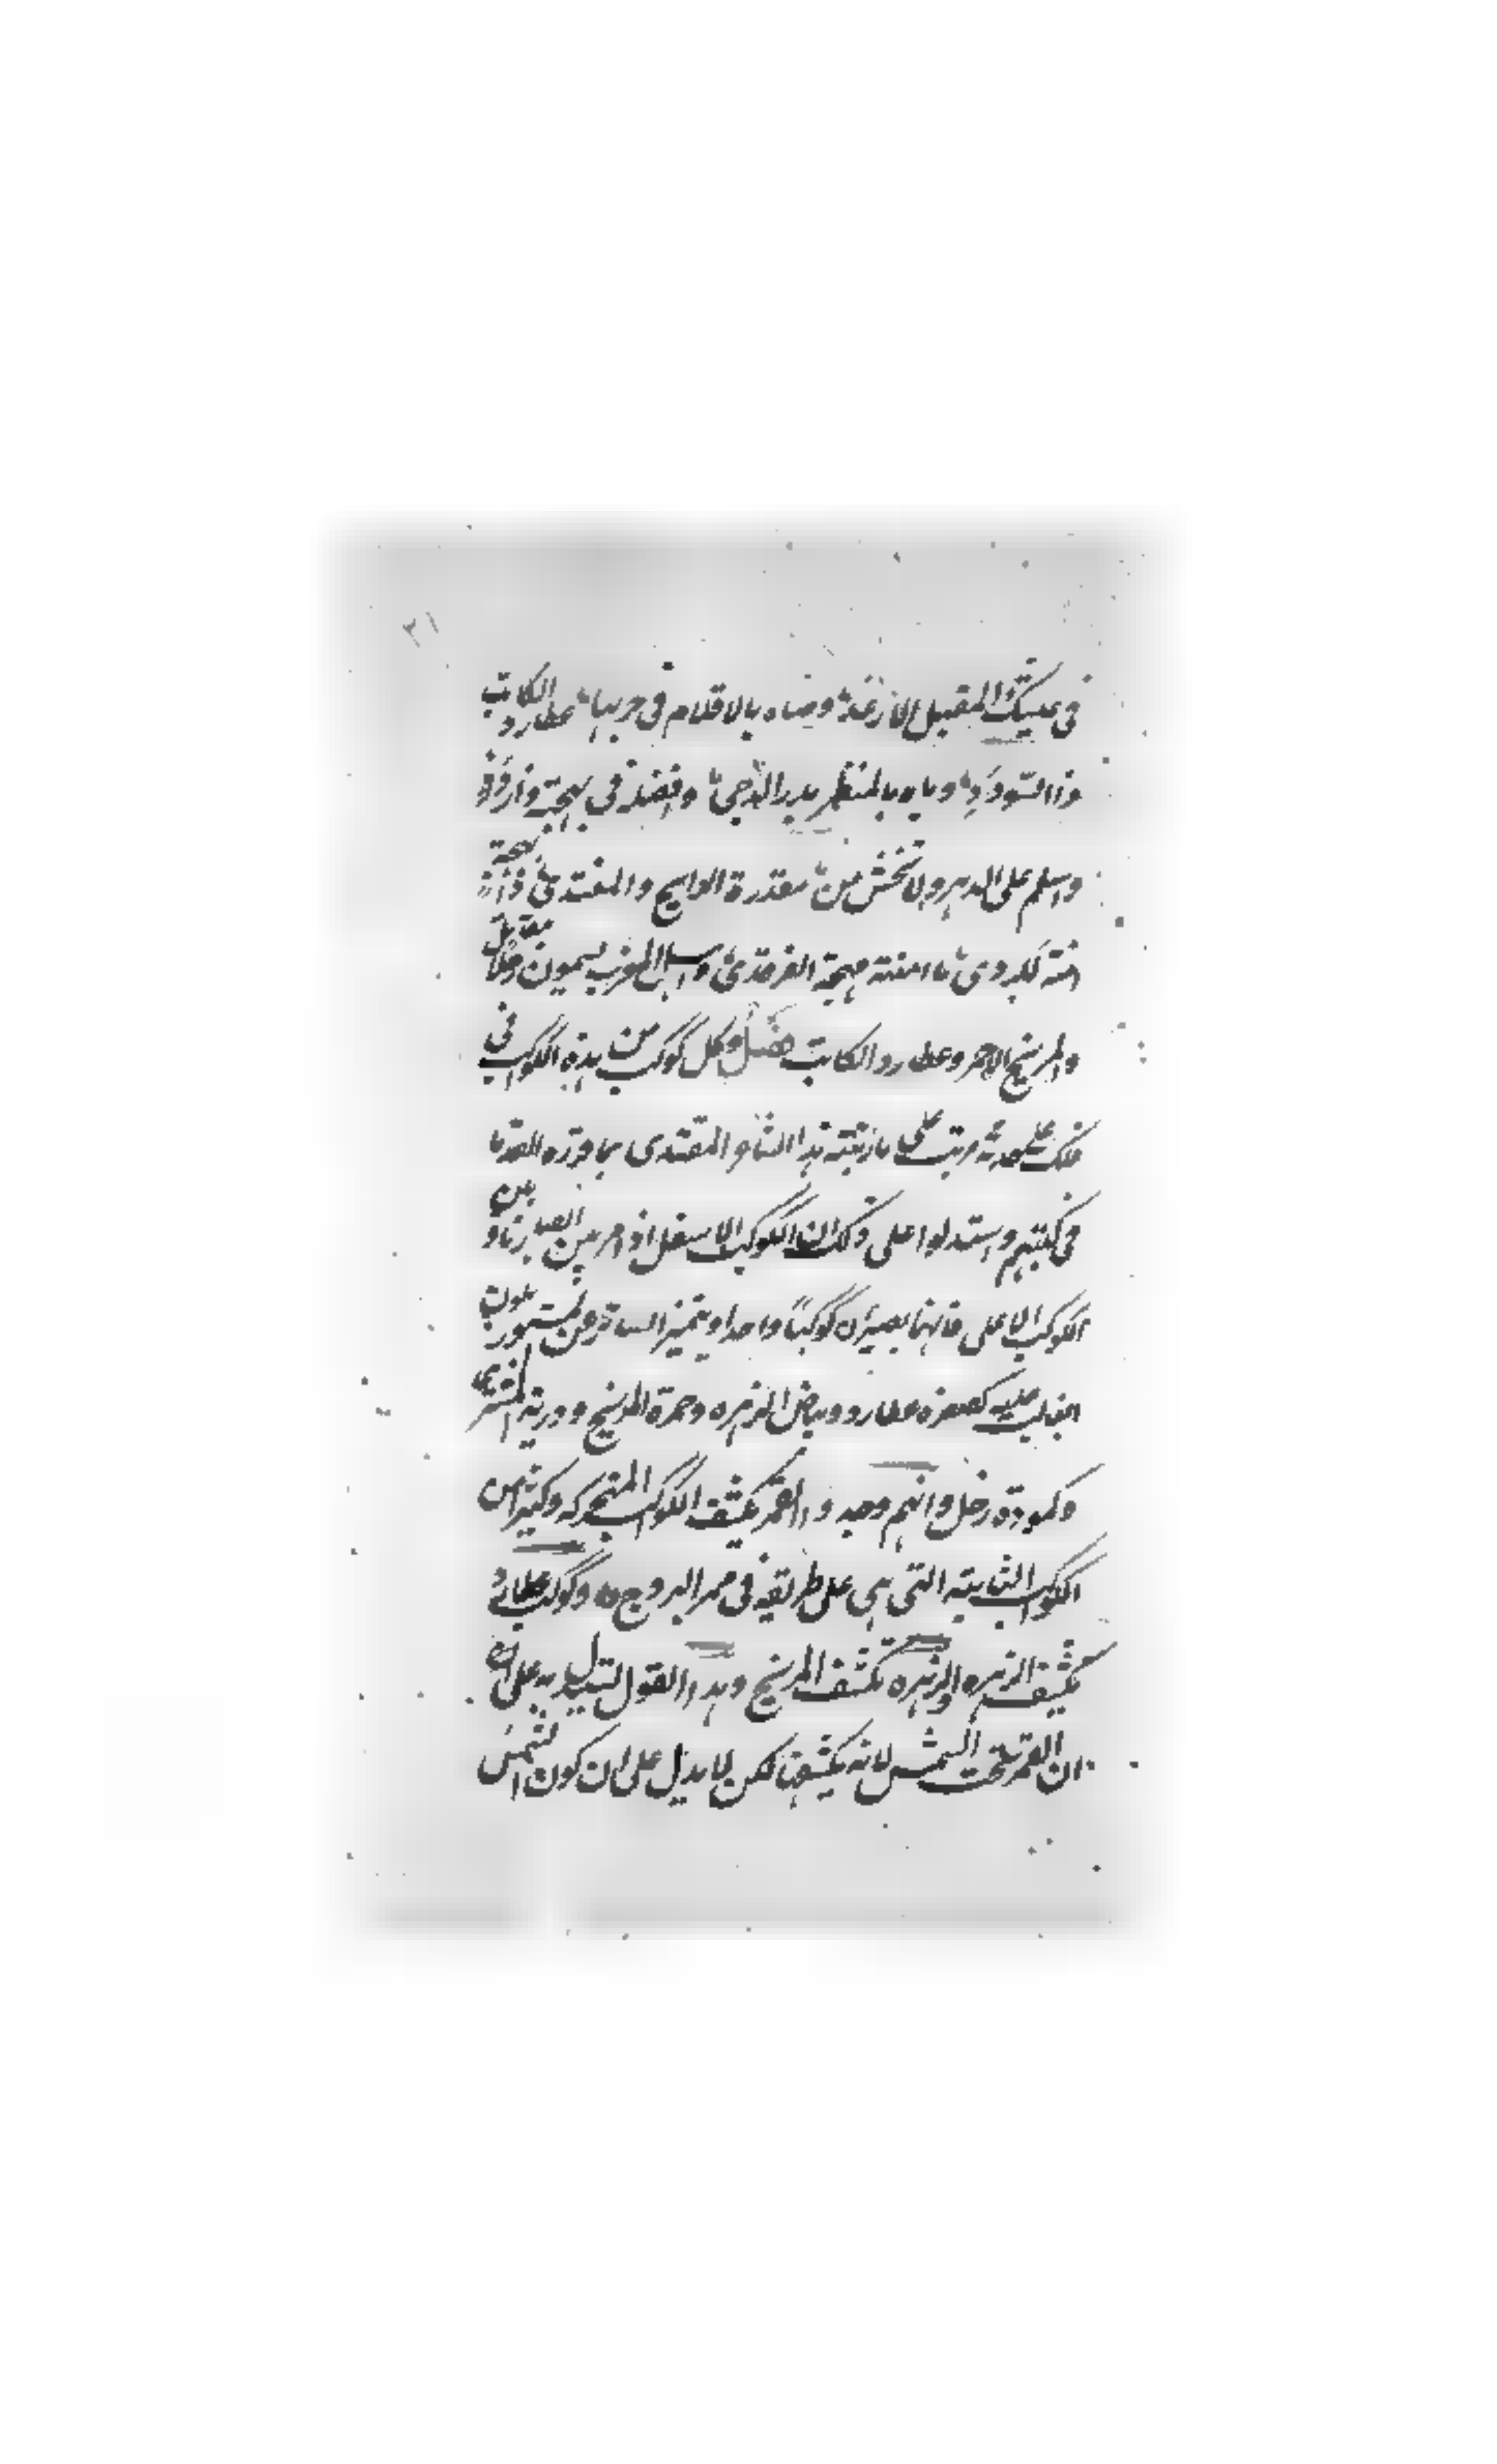 ٣١
في عيشك المقبل الارغد وضاه بالاقلام في جريها عطارد الكاتب
ذا السودد وباه بالمنظر بدر الدجى وافضله في بهجة وازدد
واسلم على الدهر ولا تخش من مقدرة الرايح والمغتدى
ما امنته مهجة الفرقدى واهل المغرب يسمون زحلا مقاتل
والمريخ الاحمر وعطارد الكاتب وكل كوكب من هذه الكواكب في
فلك على حدته مرتب على ما رتبته هذا الشاعر المقتدى بما قرره القدما
في كتبهم واستدلوا على ذلك ان الكوكب الاسفل اذا مر بين ابصارنا وبين
الكوكب الاعلى فانهما يصيران كوكبا واحدا ويتميز الساتر عن المستور بلون
الغالب عليه كصفرة عطارد وبياض الزهره وحمرة المريخ ودرية المشترى
وكمودة زحل وانهم وجدوا القمر يكشف الكواكب المتحركه وكثيرا من
الكواكب الثابتة التي هي على طريقه في ممر البروج وكوكب عطارد
يكشف الزهره والزهره تكشف المريخ وهذا القول يستدل به على
ان القمر تحت الشمس لانه يكشفها لكن لا يدل على ان كون الشمس